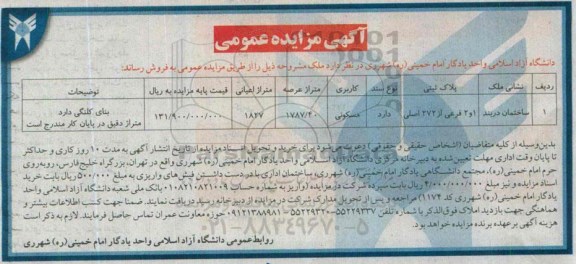 آگهی مزایده عمومی
دانشگاه آزاد اسلامی واحد یادگار امام خمینی (ره) شهرری در نظر دارد ملک مشروحه ذیل را از طریق مزایده عمومی به فروش رساند:
ردیف نشانی ملک پلاک ثبتی نوع سند کاربری متراژ عرصه متراژ اعیانی قیمت پایه مزایده به ریال توضیحات
۱ ساختمان دربند ۱و۲ فرعی از ۲۷۲ اصلی دارد مسکونی ۱۷۸۷/۲۰ ۱۸۲۷ ۱۳۱/۹۰۰/۰۰۰/۰۰۰ بنای کلنگی دارد
متراژ دقیق در پایان کار مندرج است
بدین وسیله از کلیه متقاضیان (اشخاص حقیقی و حقوقی) دعوت می شود برای خرید و تحویل اسناد مزایده از تاریخ انتشار آگهی به مدت ۱۰ روز کاری و حداکثر
تا پایان وقت اداری مهلت تعیین شده به دبیرخانه مرکزی دانشگاه آزاد اسلامی واحد یادگار امام خمینی (ره) شهرری واقع در تهران، بزرگراه خلیج فارس، روبه روی
حرم امام خمینی (ره)، مجتمع دانشگاهی یادگار امام خمینی (ره) شهرری، ساختمان اداری با در دست داشتن فیش های واریزی به مبلغ ۵۰۰/۰۰۰ ریال بابت خرید
اسناد مزایده و نیز مبلغ ۴/۰۰۰/۰۰۰/۰۰۰ ریال بابت سپرده شرکت در مزایده (واریز به شماره حساب ۰۱۰۸۲۱۰۸۲۱۰۰۹ بانک ملی شعبه دانشگاه آزاد اسلامی واحد
یادگار امام خمینی (ره) شهرری کد ۱۱۷۴) مراجعه و پس از تحویل مدارک شرکت در مزایده از دبیرخانه رسید دریافت نمایند. ضمنا جهت کسب اطلاعات بیشتر و
هماهنگی جهت بازدید املاک فوق الذکر با شماره تلفن ۵۵۲۲۹۳۳۷-۵۵۲۲۹۳۲۰-۰۹۱۲۱۳۸۸۹۸۱ حوزه معاونت عمران تماس حاصل فرمایند. لازم به ذکر است
هزینه آگهی بر عهده برنده مزایده خواهد بود.
روابط عمومی دانشگاه آزاد اسلامی واحد یادگار امام خمینی (ره) شهرری
۰۲۱-۸۸۳۴۹۶۷۰-۵